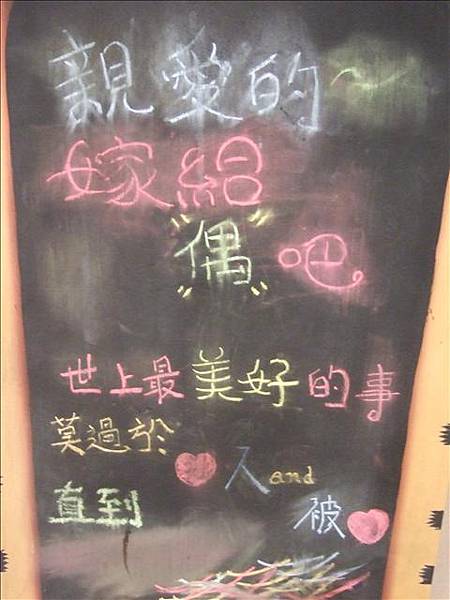 親愛的~
嫁給
"偶"吧
世上最美好的事
莫過於
♥人and
直到 被♥